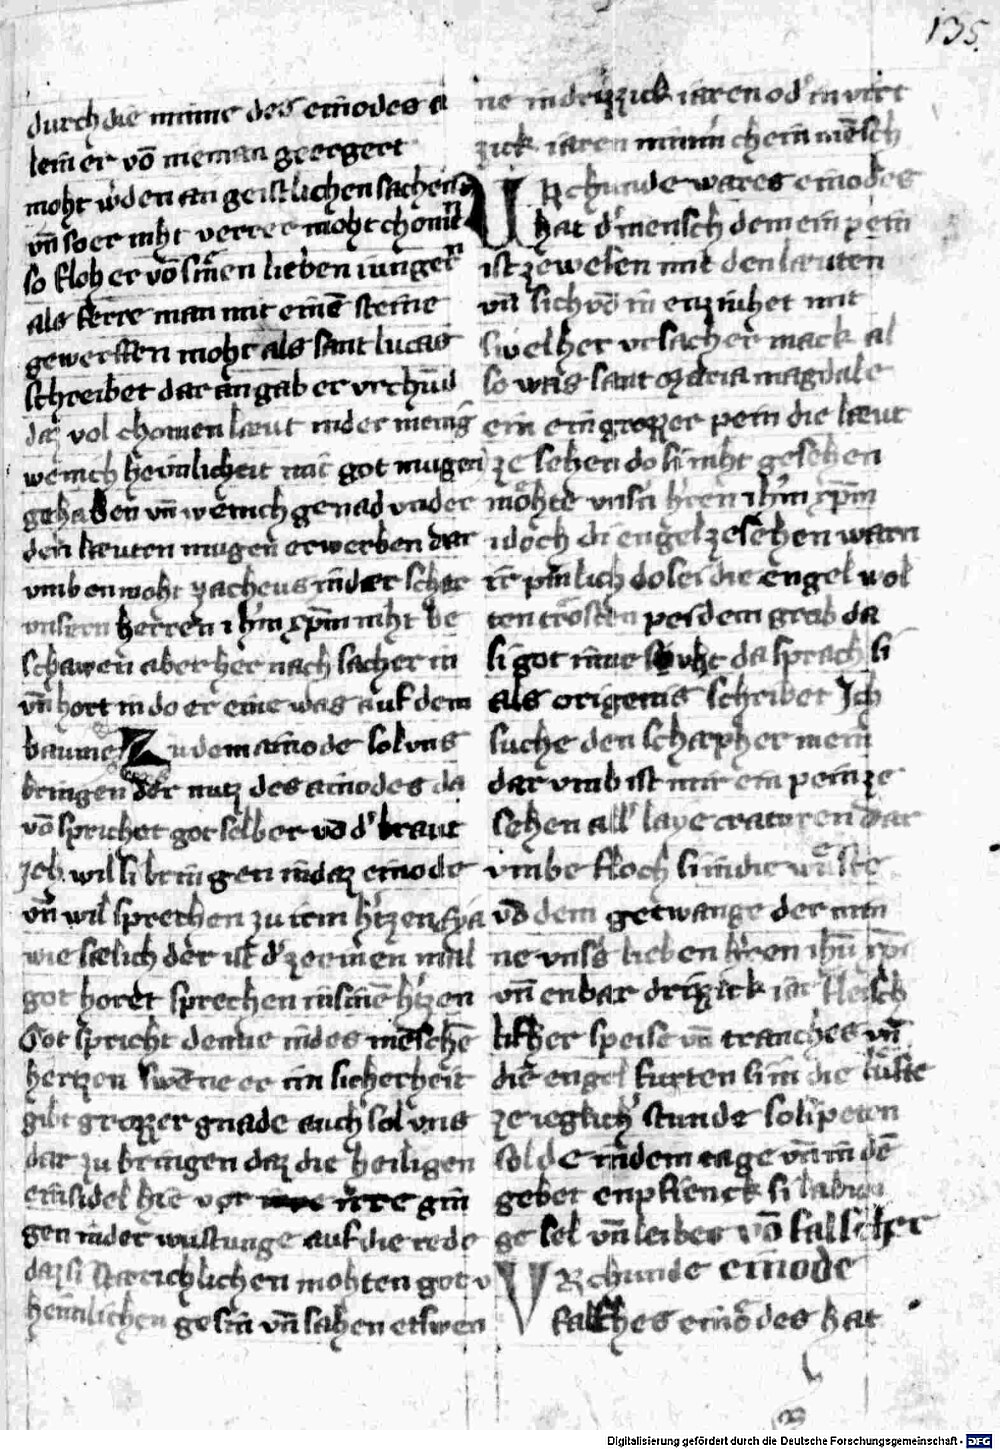 135.
durch die minne des einodes a
lein er võ nieman geergert
moht wͦden an geistlichen sachen
vñ so er niht verrer moht chomen
so floh er võ sinen lieben iungern
als ferre man mit einē steine
geworffen moht als sant lucas
schreibet dar an gab er vrchūd
daz vol chomen læut in der menig
wenich heimlicheit mit got mugen
gehaben vñ wenich genad vnder
den læuten mugen erwerben dar
vmb en moht zacheus in der schar
vnsern herren ihm xpm niht be
schawen aber her nach sach er in
vñ hort in do er eine was auf dem
baume Zu dem ainode sol vns
bringen der nutz des ainodes da
võ sprichet got selber võ d' braut
Ich wil si bringen in daz einode
vñ wil sprechen zu irm h'tzen Eya
wie sælich der ist d' ze einen mal
got horet sprechen in sinē h'tzen
Got spricht denne in des menschē
hertzen swenne er im sicherheit
gibt grozzer gnade auch sol vns
dar zu bringen daz die heiligen
einsidel hie vor irre gin
gen in der wustunge auf die rede
daz si stætichlichen mohten got
heimlichen gesin vñ sahen etswen
ne in dreizzick iaren od' in virt
zick iaren minn' chein mēsch
VRchunde wares einodes
hat d' mensch dem ein pein
ist ze wesen mit den læuten
vñ sich võ in enziuhet mit
swelher vrsach er mack al
so was sant maria magdale
ein ein grozzer pein die læut
ze sehen do si niht gesehen
möhte vnsn h'ren ihm xpm
idoch di engel ze sehen warn
ir pinlich do sei die engel wol
ten trösten pei dem grab da
si got inne suht da sprach si
als origenis schribet Ich
suche den schepher mein
dar vmb ist mir ein pein ze
sehen all' laye craturen dar
vmbe floch si in die wüste
võ dem getwange der min
ne vnsˢ lieben h'ren ihū xpi
vñ enbar drizzick iar fleisch
licher speise vñ tranches vñ
die engel furten si in die lüfte
ze ieglich' stunde so si peten
solde in dem tage vñ in dē
gebet enpfienck si labun
ge sel vñ leibes võ falscher
VRchunde einode
falsches einödes hat
Digitalisierung gefördert durch die Deutsche Forschungsgemeinschaft - DFG